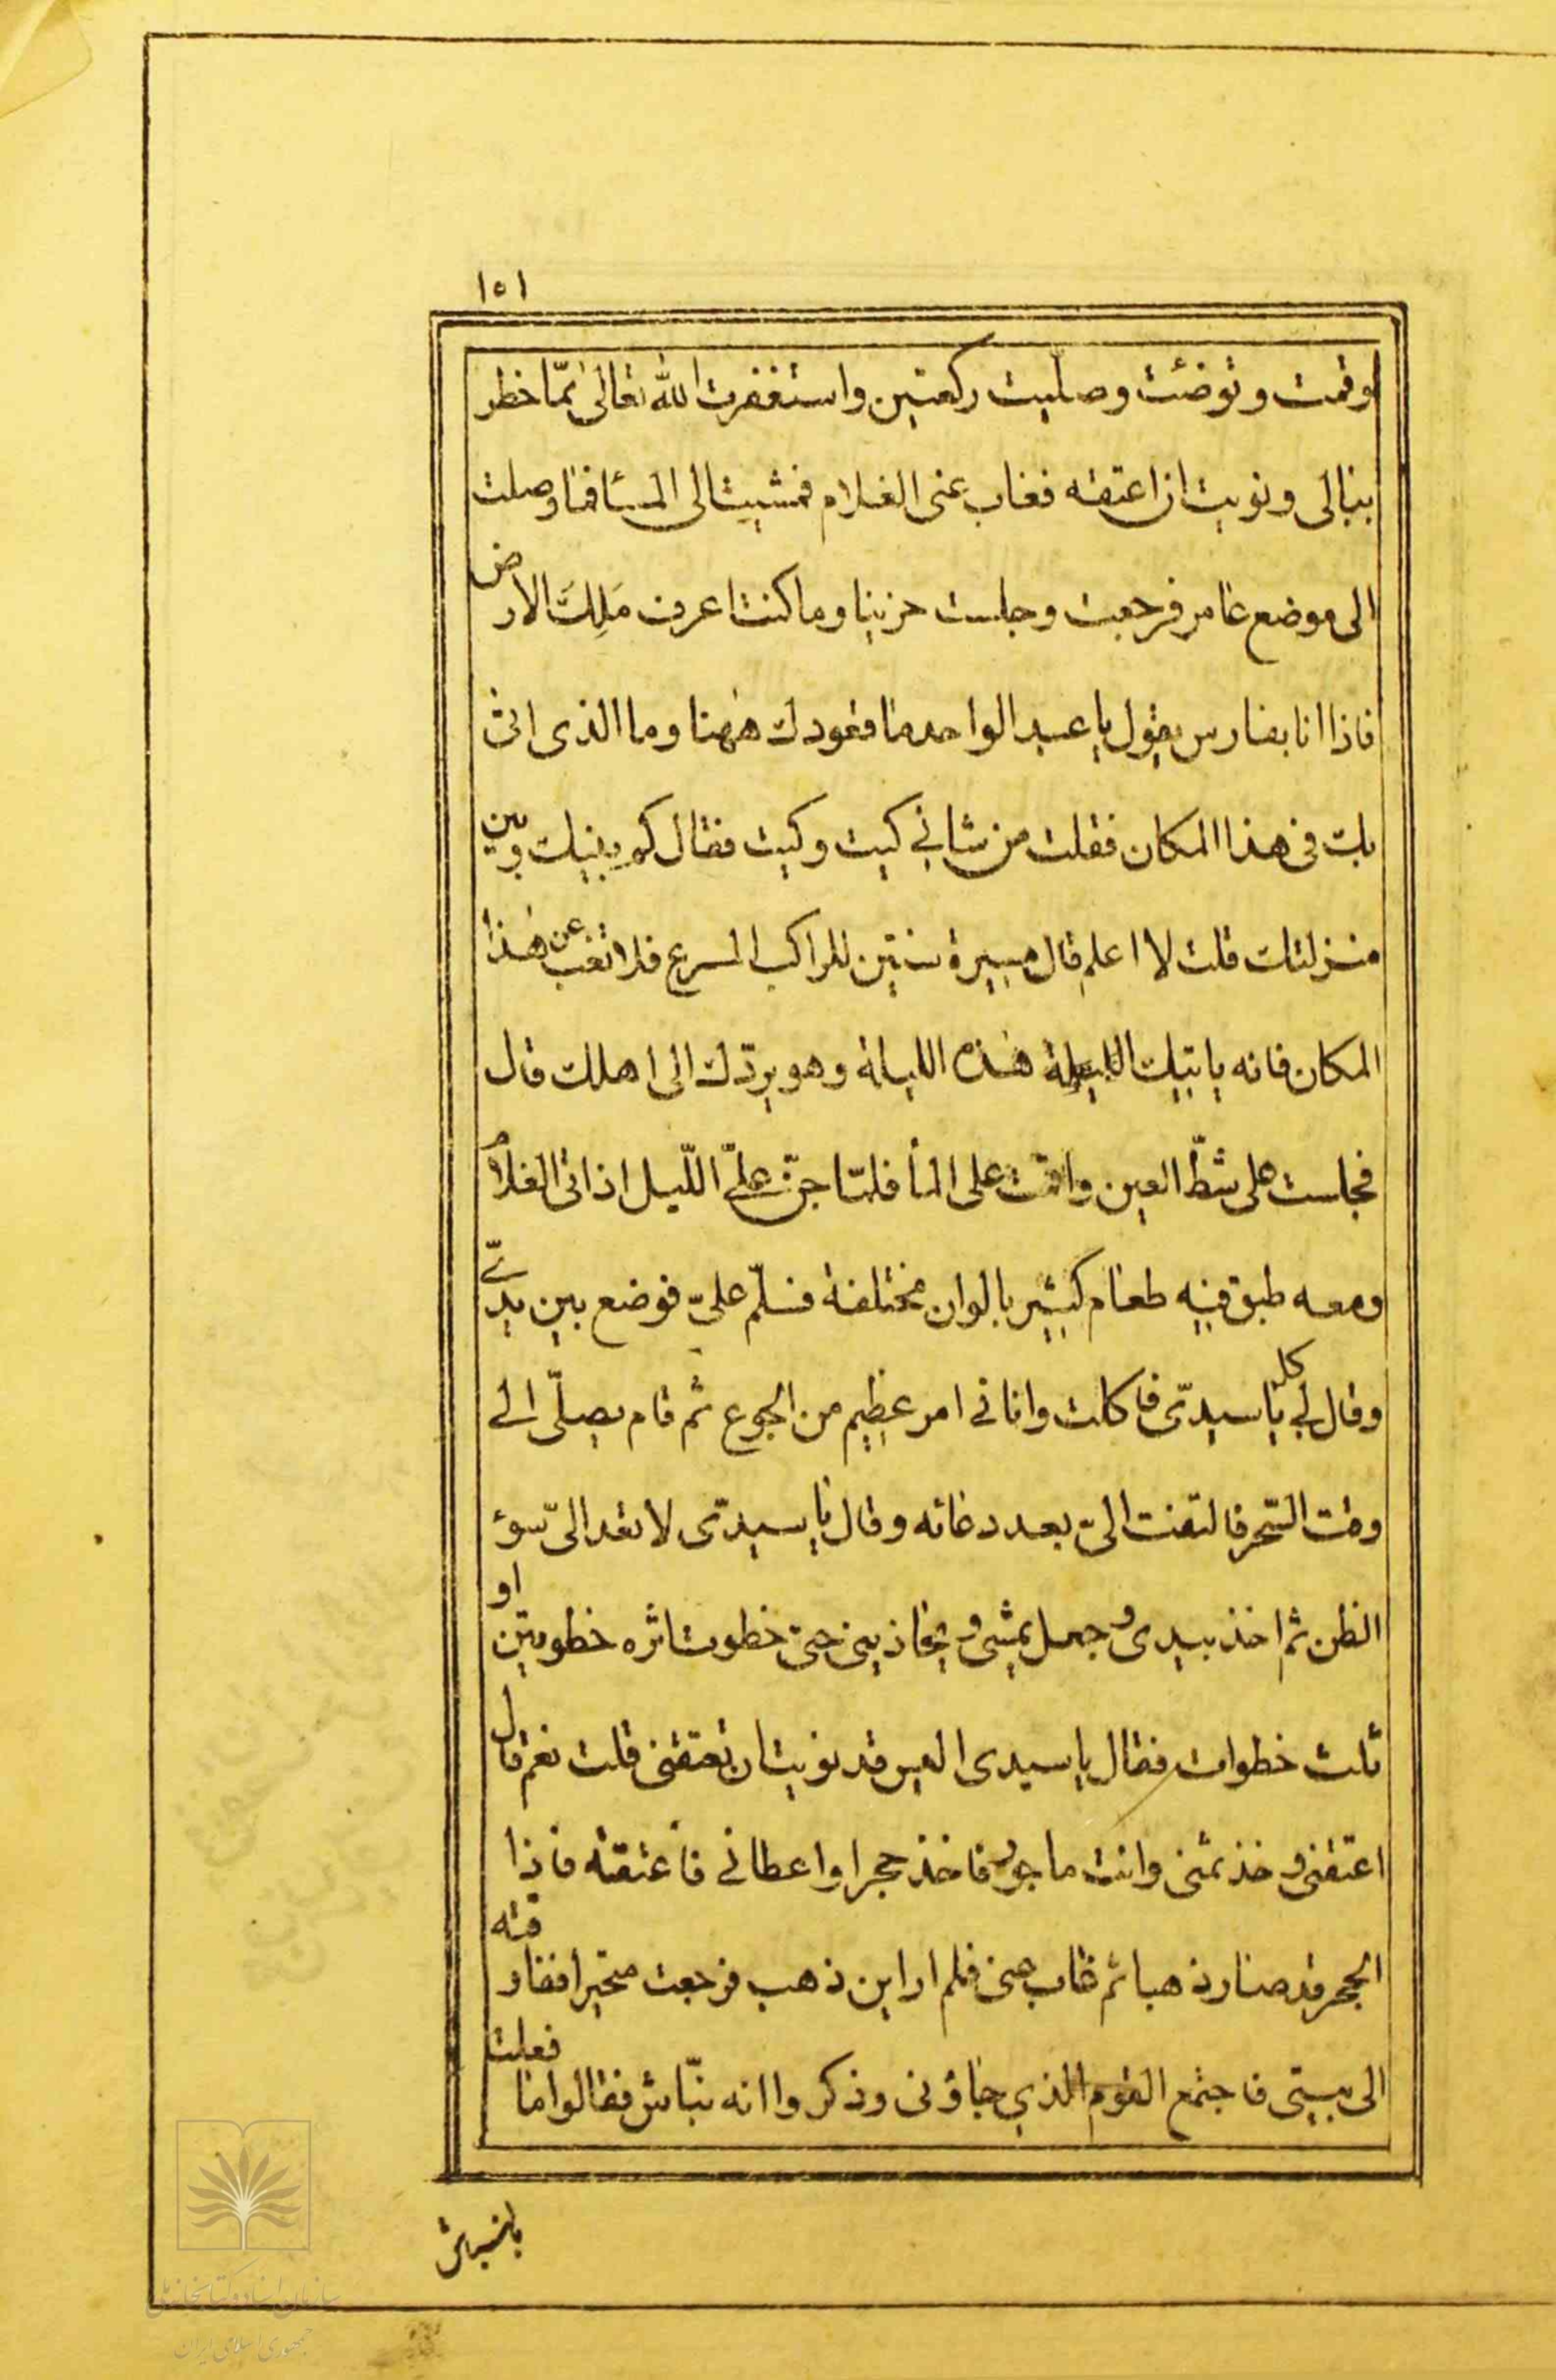 ١٥١
وقمت وتوضئت وصليت ركعتين واستغفرت الله تعالى ممّا خطر
ببالى ونويت ان اعتقه فغاب عنى الغلام فمشيت الى المسا فما وصلت
الى موضع عامر فرجعت وجلست حزينا وما كنت اعرف مَلِكَ الارض
فاذا انا بفارس يقول يا عبد الواحد ما قعودك ههنا وما الذى اتى
بك فى هذا المكان فقلت من شانى كيت وكيت فقال كم بينك وبين
منزلتك قلت لا اعلم قال مسيرة سنتين للراكب المسرع فلا تغب عن هذا
المكان فانه ياتيك الليلة هذه الليلة وهو يردّك الى اهلك قال
فجلست على شطّ العين واقمت على المأ فلمّا جنّ علىّ اللّيل اذ اتى الغلام
ومعه طبق فيه طعام كثير بالوان مختلفة فسلّم علىّ فوضع بين يدىّ
وقال لى كل يا سيدىّ فاكلت وانا فى امر عظيم من الجوع ثم قام يصلّى الى
وقت السّحر فالتفت الىّ بعد دعائه وقال يا سيدىّ لا تعد الىّ سوء
الظن ثم اخذ بيدى وجعل يمشى و يحاذينى حتى خطوت اثره خطوتين او
ثلث خطوات فقال يا سيدى اليس قد نويت ان تعتقنى قلت نعم قال
اعتقنى وخذ ثمنى وانت ماجور فاخذ حجرا واعطانى فاعتقته فاذا
الحجر قد صار ذهبا ثم غاب عنى فلم ار اين ذهب فرجعت متحيرا فقادقته
الى بيتى فاجتمع القوم الذي جاؤنى وذكروا انه نبّاش فقالوا ما فعلت
بالنباش
سازمان اسناد و کتابخانه ملی
جمهوری اسلامی ایران